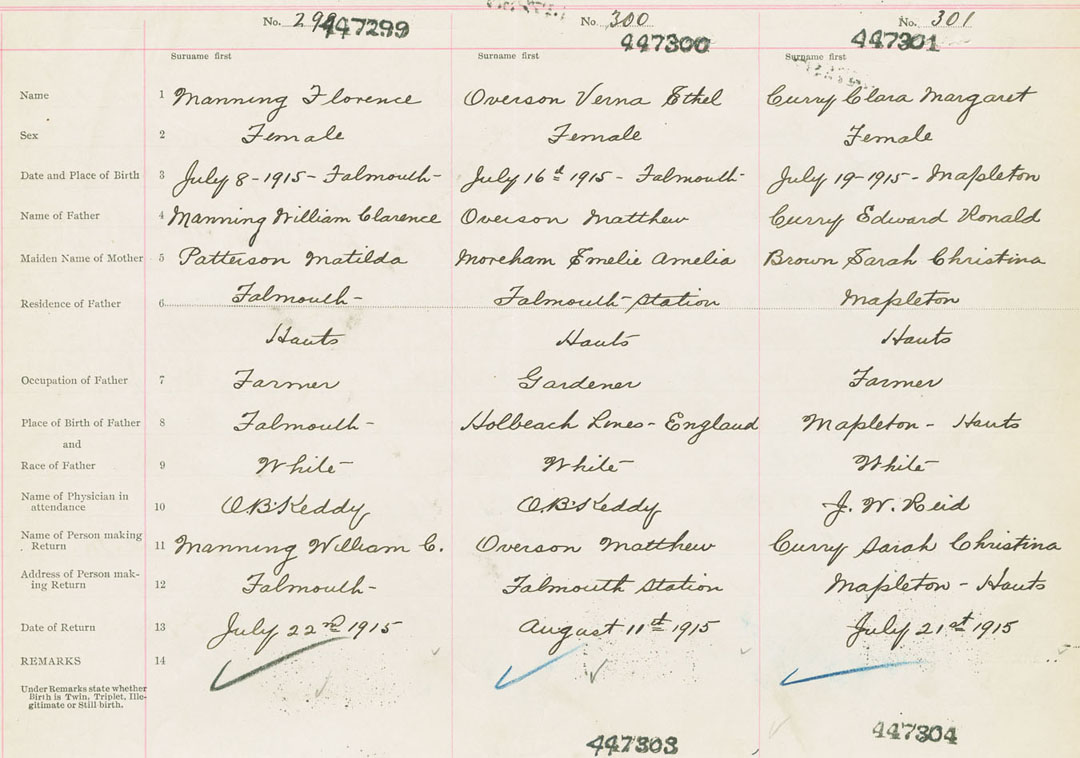 No. 299 447299 No. 300 447300 No. 301 447301
Surname first Surname first Surname first
Name 1 Manning Florence Overson Verna Ethel Curry Clara Margaret
Sex 2 Female Female Female
Date and Place of Birth 3 July 8-1915- Falmouth- July 16th 1915- Falmouth July 19-1915- Mapleton
Name of Father 4 Manning William Clarence Overson Matthew Curry Edward Ronald
Maiden Name of Mother 5 Patterson Matilda Moreham Emelie Amelia Brown Sarah Christina
Residence of Father 6 Falmouth- Falmouth Station Mapleton
Hants Hants Hants
Occupation of Father 7 Farmer Gardener Farmer
Place of Birth of Father 8 Falmouth- Holbeach Lines- England Mapleton- Hants
and
Race of Father 9 White White White
Name of Physician in
attendance 10 O B Keddy O B Keddy J. W. Reid
Name of Person making
Return 11 Manning William C. Overson Matthew Curry Sarah Christina
Address of Person mak-
ing Return 12 Falmouth- Falmouth Station Mapleton- Hants
Date of Return 13 July 22nd 1915 August 11th 1915 July 21st 1915
REMARKS 14
Under Remarks state whether
Birth is Twin, Triplet, Ille-
gitimate or Still birth.
447303 447304